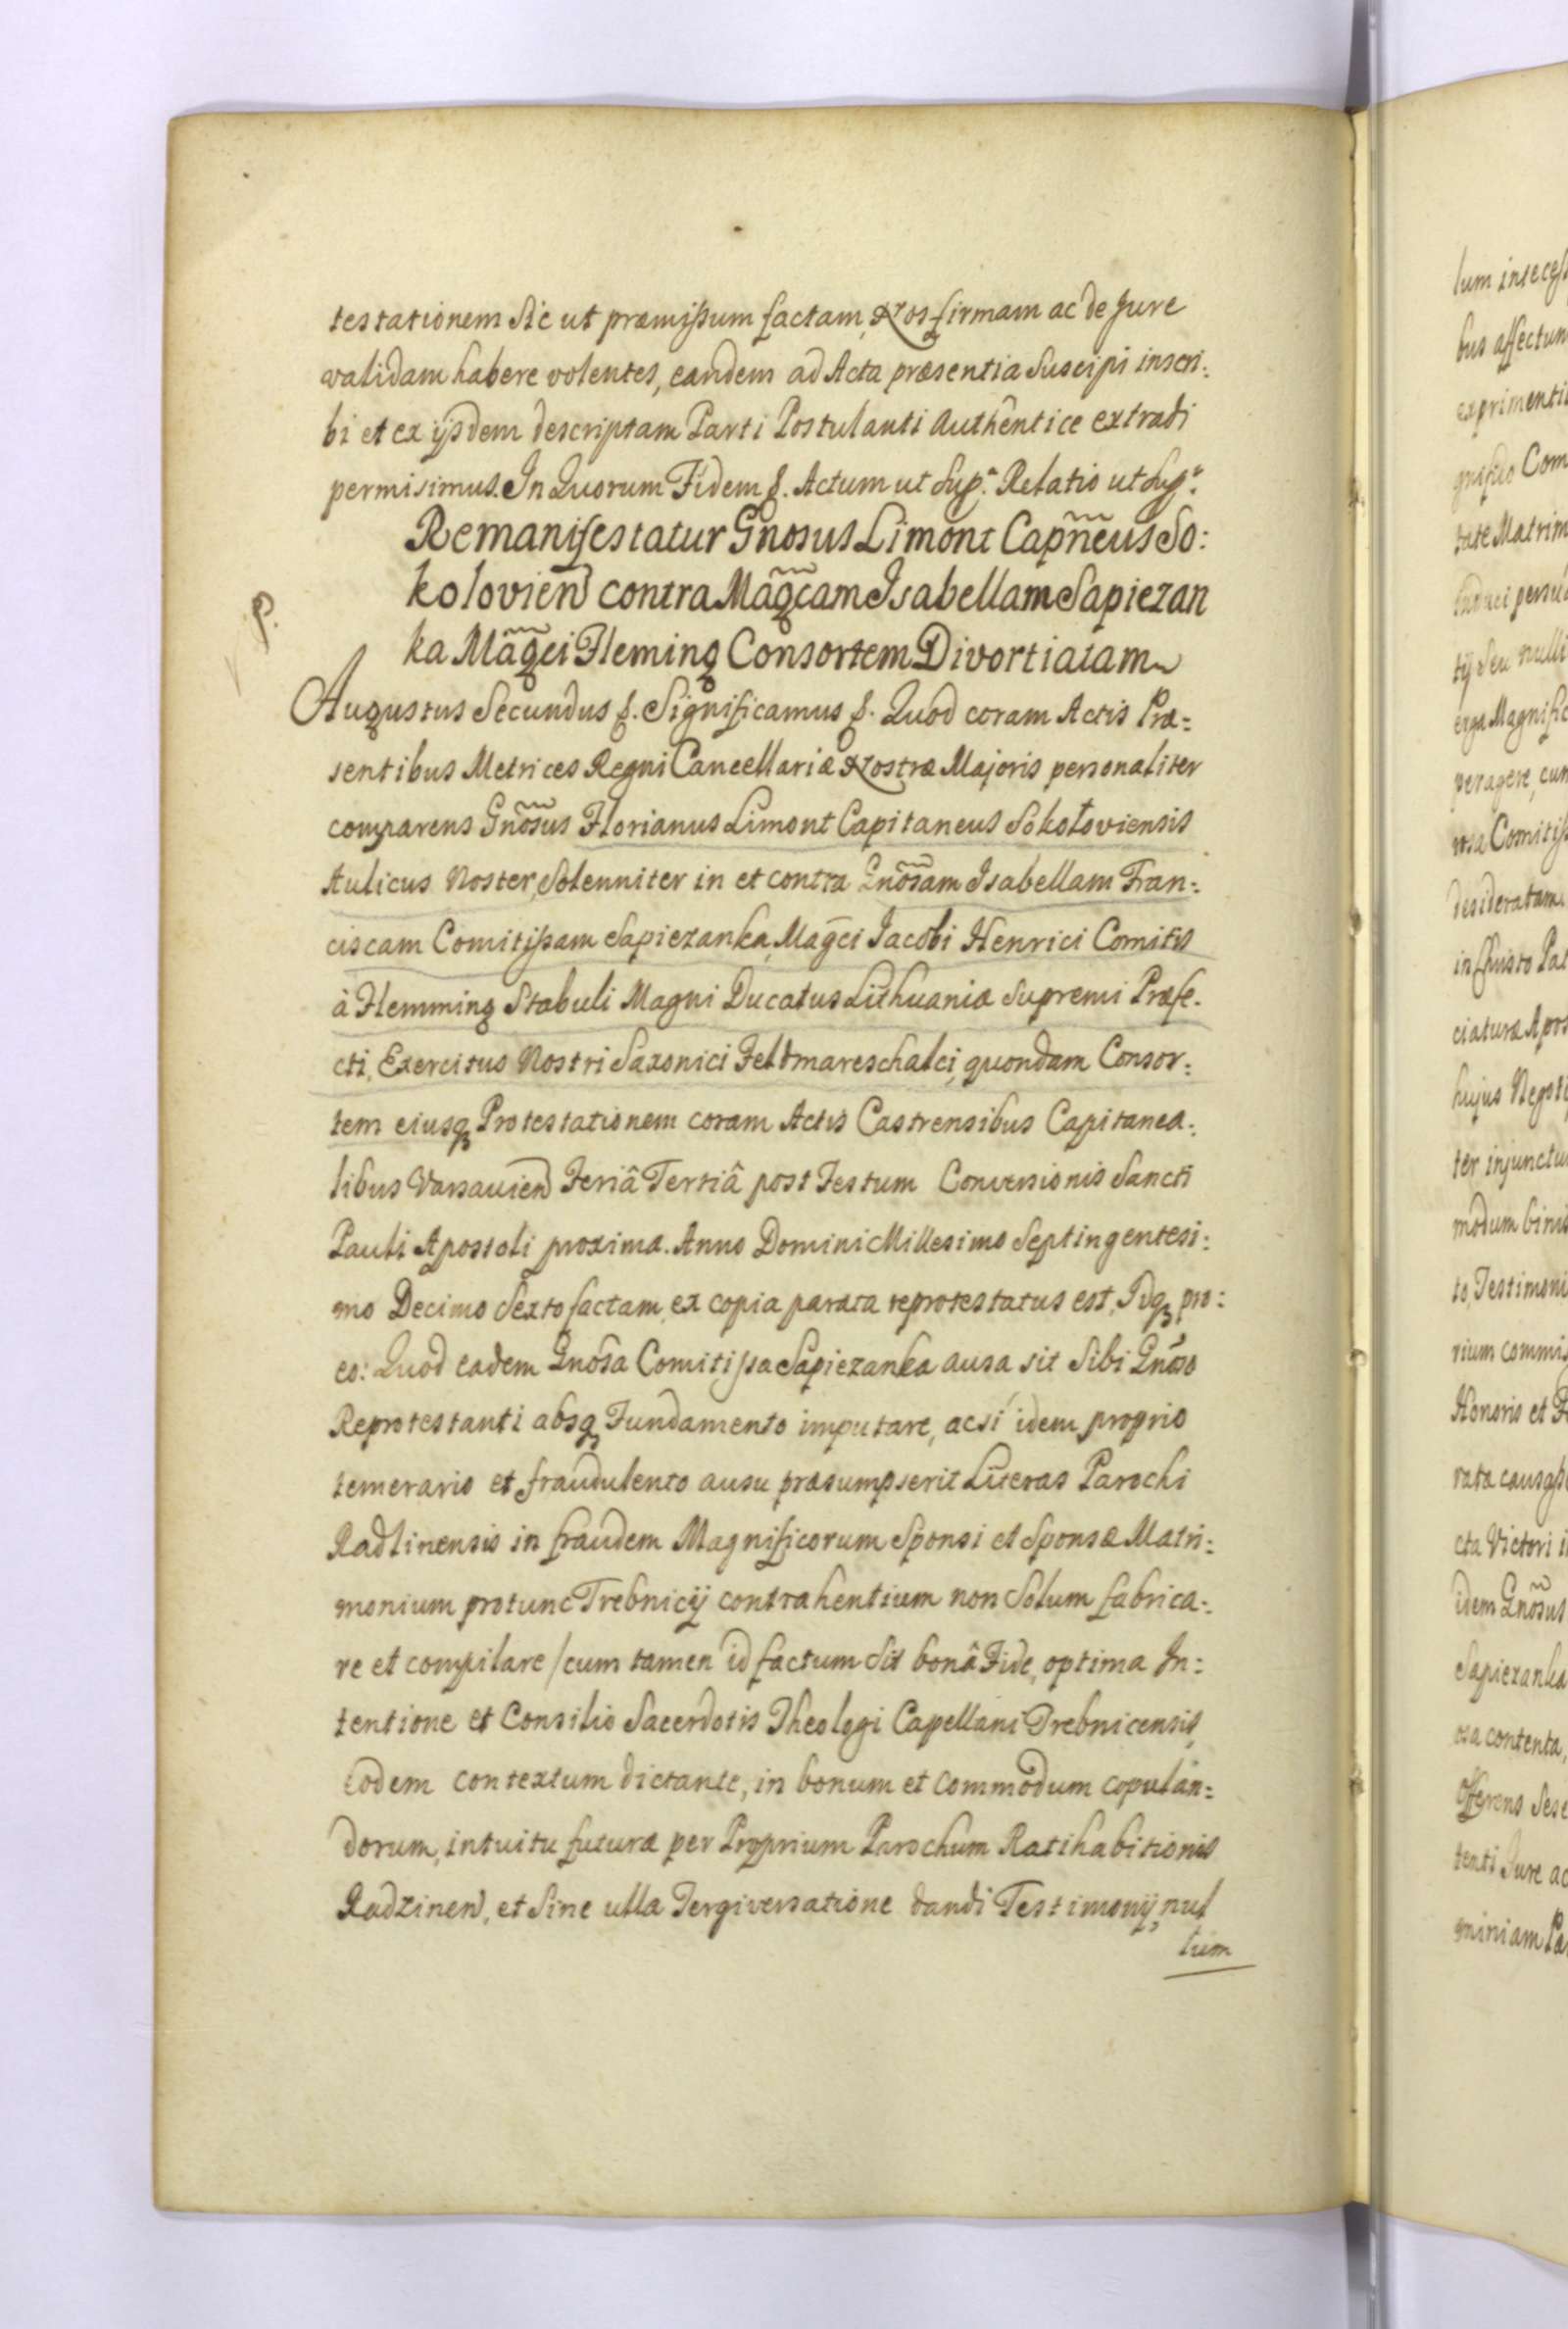 testationem Sic ut præmissum factam, Nos firmam ac de Jure
validam habere volentes, eandem ad Acta præsentia Suscipi inscri:
bi et ex ijsdem descriptam Parti Postulanti Authentice extradi
permisimus. In Quorum Fidem &. Actum ut Supª. Relatio ut Supª.
Remanifestatur Gnosus Limont Capñeus So:
kolovień contra Magcam Isabellam Sapiezan
P.
ka Magci Fleming Consortem Divortiatam
Augustus Secundus &. Significamus &. Quod coram Actis Præ:
sentibus Metrices Regni Cancellariæ Nostræ Majoris personaliter
comparens Gnõsus Florianus Limont Capitaneus Sokołoviensis
Aulicus Noster, Solenniter in et contra Gnõsam Isabellam Fran:
ciscam Comitissam Sapiezanka, Magci Jacobi Henrici Comitis
à Flemming Stabuli Magni Ducatus Lithuaniæ Supremi Præfe.
cti, Exercitus Nostri Saxonici Feldmareschalci, quondam Consor:
tem eiusq Protestationem coram Actis Castrensibus Capitanea:
libus Varsavień Feriâ Tertiâ post Festum Conversionis Sancti
Pauli Apostoli proxima. Anno Domini Millesimo Septingentesi:
mo Decimo Sexto factam, ex copia parata reprotestatus est, Idq pro:
eo: Quod eadem Gnosa Comitissa Sapiezanka ausa sit Sibi Gnõso
Reprotestanti absq Fundamento imputare, acsi idem proprio
temerario et fraudulento ausu præsumpserit Literas Parochi
Radlinensis in fraudem Magnificorum Sponsi et Sponsæ Matri:
monium protunc Trebnicij contrahentium non Solum fabrica:
re et compilare /cum tamen id factum Sit bonâ Fide, optima In:
tentione et Consilio Sacerdotis Theologi Capellani Trebnicensis,
eodem contextum dictante, in bonum et Commodum copulan:
dorum, intuitu futuræ per Proprium Parochum Ratihabitionis
Radzineń, et Sine ulla Tergiversatione dandi Testimonij, nul
lum
bus affectum
exprimenti
Com
tate Matrim
tij Seu nulli
erga Magnific
peragere, cum
rosa Comitiss
desideratam
in Christo Pat
ciaturæ Apos
hujus Negoti
ter injunctu
modum binis
to, Testimoni
rium commis
Honoris et F
rata causa
cta Victori i
idem Gnõsus
Sapiezanka
osa contenta,
Offerens Sese
tenti Jure ac
miniam Pa